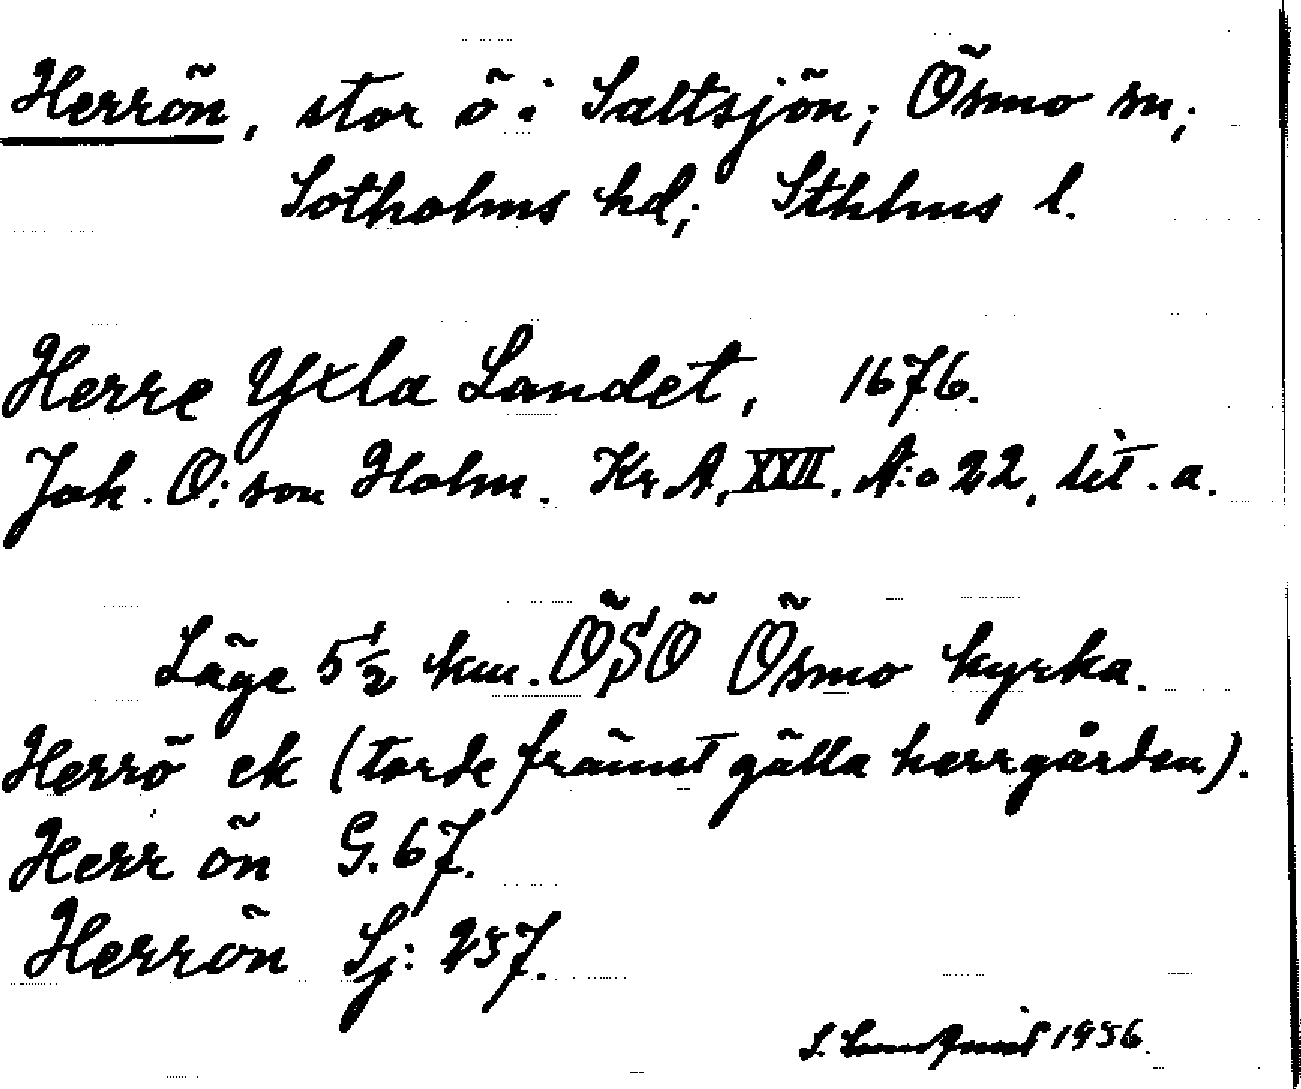 Herrön, stor ö i Saltsjön; Ösmo sn;
Sotholms hd; Sthlms l.
Herre Yxla Landet, 1676.
Joh. O:son Holm. Kr A, XXII. N:o 22, lit. a.
Läge 5½ km. ÖSÖ Ösmo kyrka.
Herrö ek (torde främst gälla herrgården).
Herr ön G. 67.
Herrön Sj: 257.
S. Landqvist 1956.